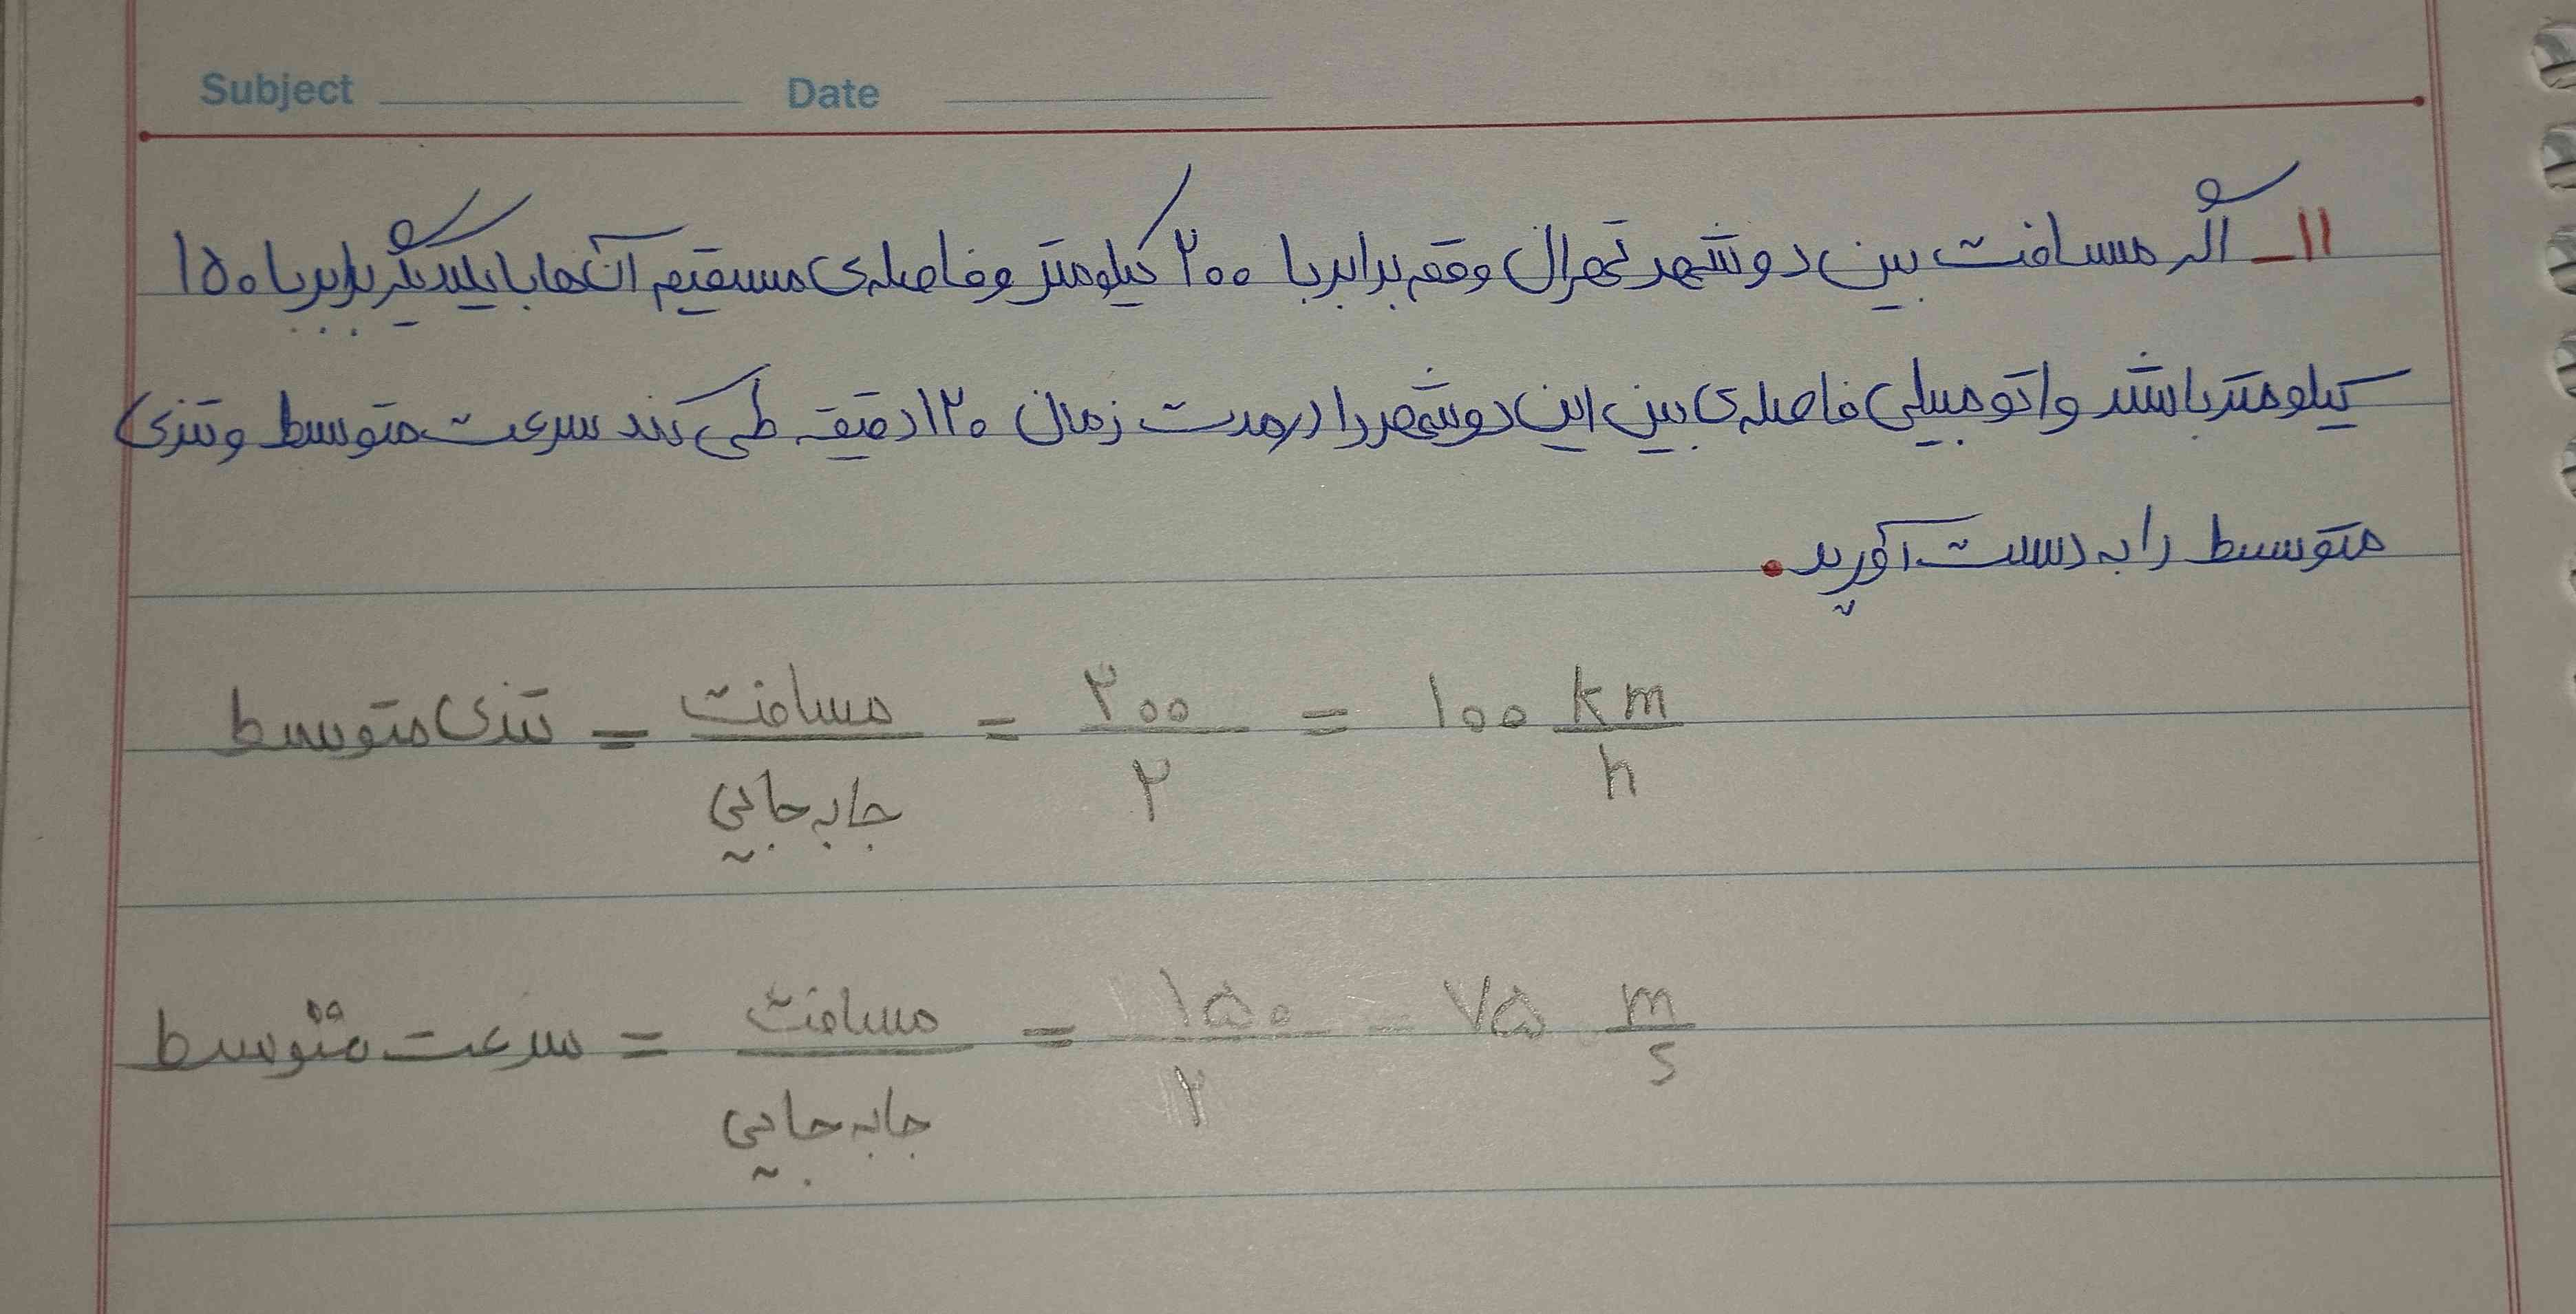 Subject Date
۱۱_ اگر مسافت بین دو شهر تهران و قم برابر با ۲۰۰ کیلومتر و فاصله ی مستقیم آن ها با یکدیگر برابر با ۱۵۰
کیلومتر باشد و اتومبیلی فاصله ی بین این دو شهر را در مدت زمان ۱۲۰ دقیقه طی کند سرعت متوسط و تندی
متوسط را به دست آورید.
تندی متوسط = مسافت / جابه جایی = ۲۰۰ / ۲ = ۱۰۰ km / h
سرعت متوسط = مسافت / جابه جایی = ۱۵۰ / ۲ = ۷۵ m / s